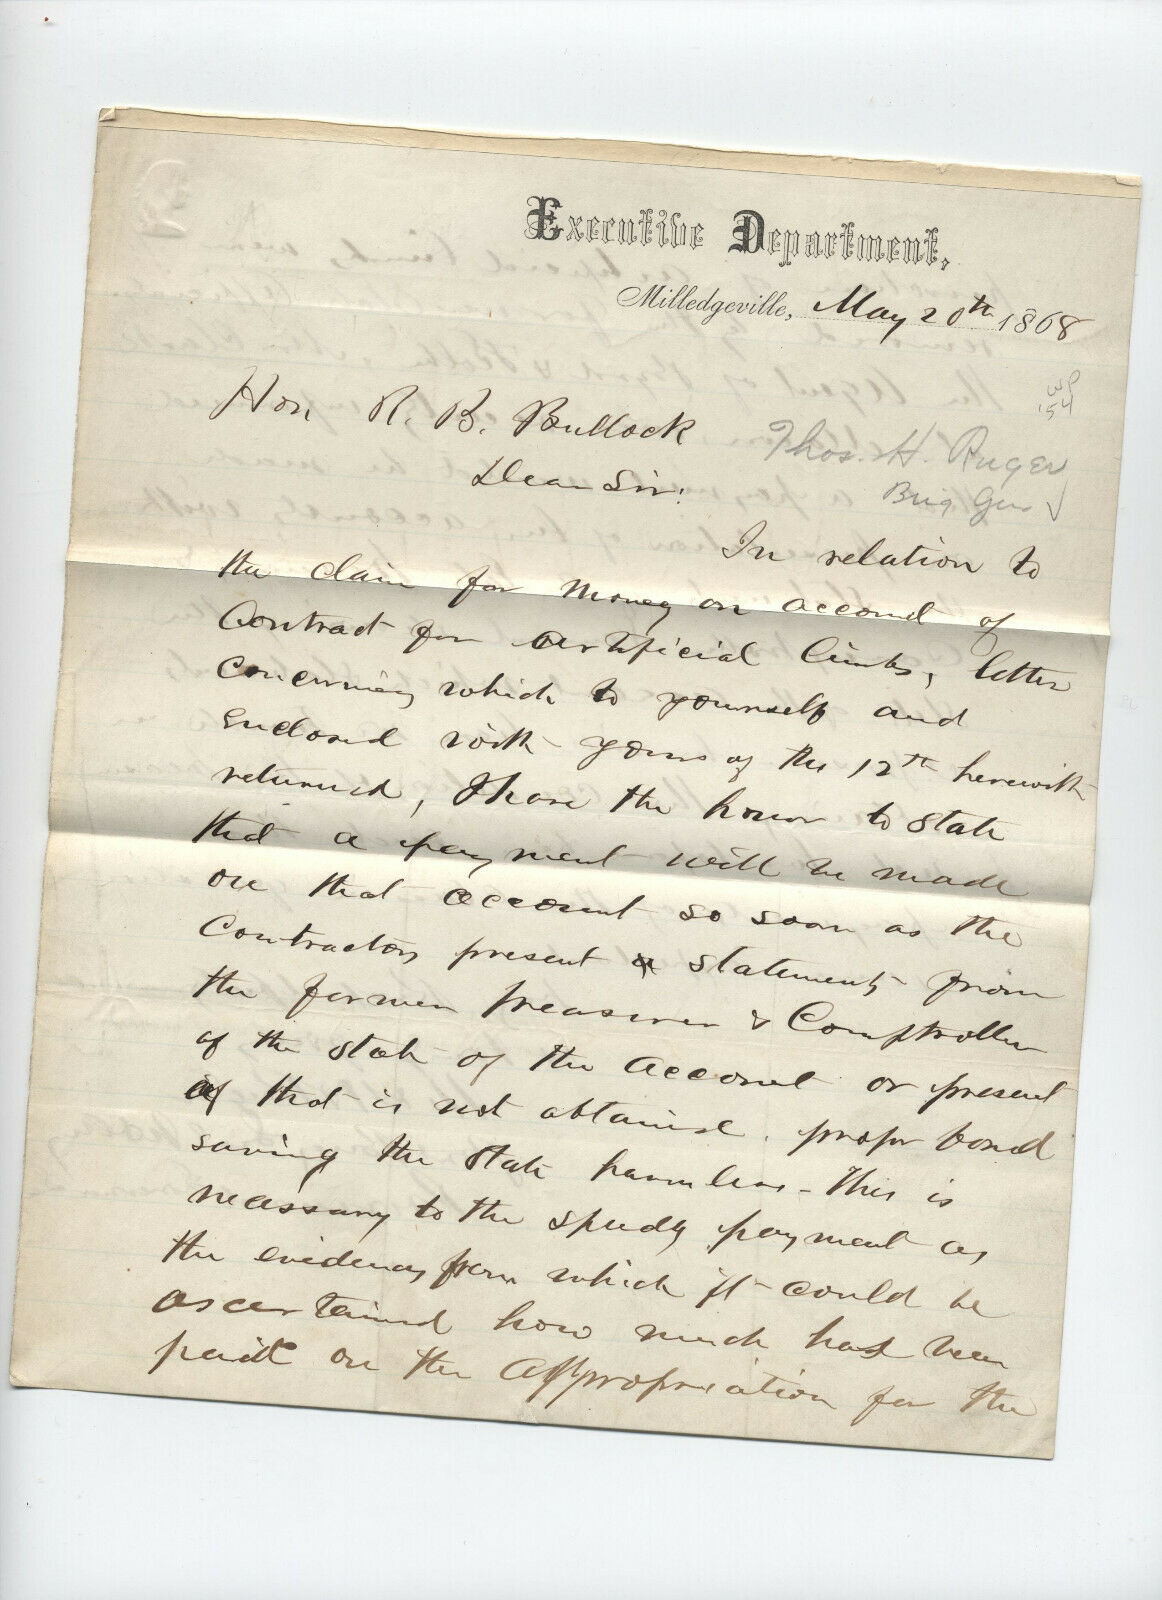 Executive Department,
Milledgeville, May 20th 1868
Hon R. B. Bullock
Thos. H. Ruger
Brig Gen
Dear Sir:
In relation to
the claim for money on account of
Contract for artificial limbs, letter
concerning which to yourself and
enclosed with yours of the 12th herewith
returned, I have the honor to state
that a payment will be made
on that account so soon as the
Contractors present a statements from
the former treasurer & Comptroller
of the state of the account or present
if that is not obtained, proper bond
saving the State harmless - This is
necessary to the speedy payment as
the evidence from which it could be
ascertained how much has been
paid on the Appropriation for the